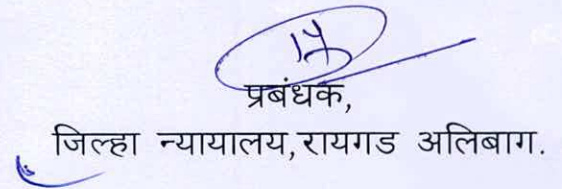 प्रबंधक,
जिल्हा न्यायालय,रायगड अलिबाग.